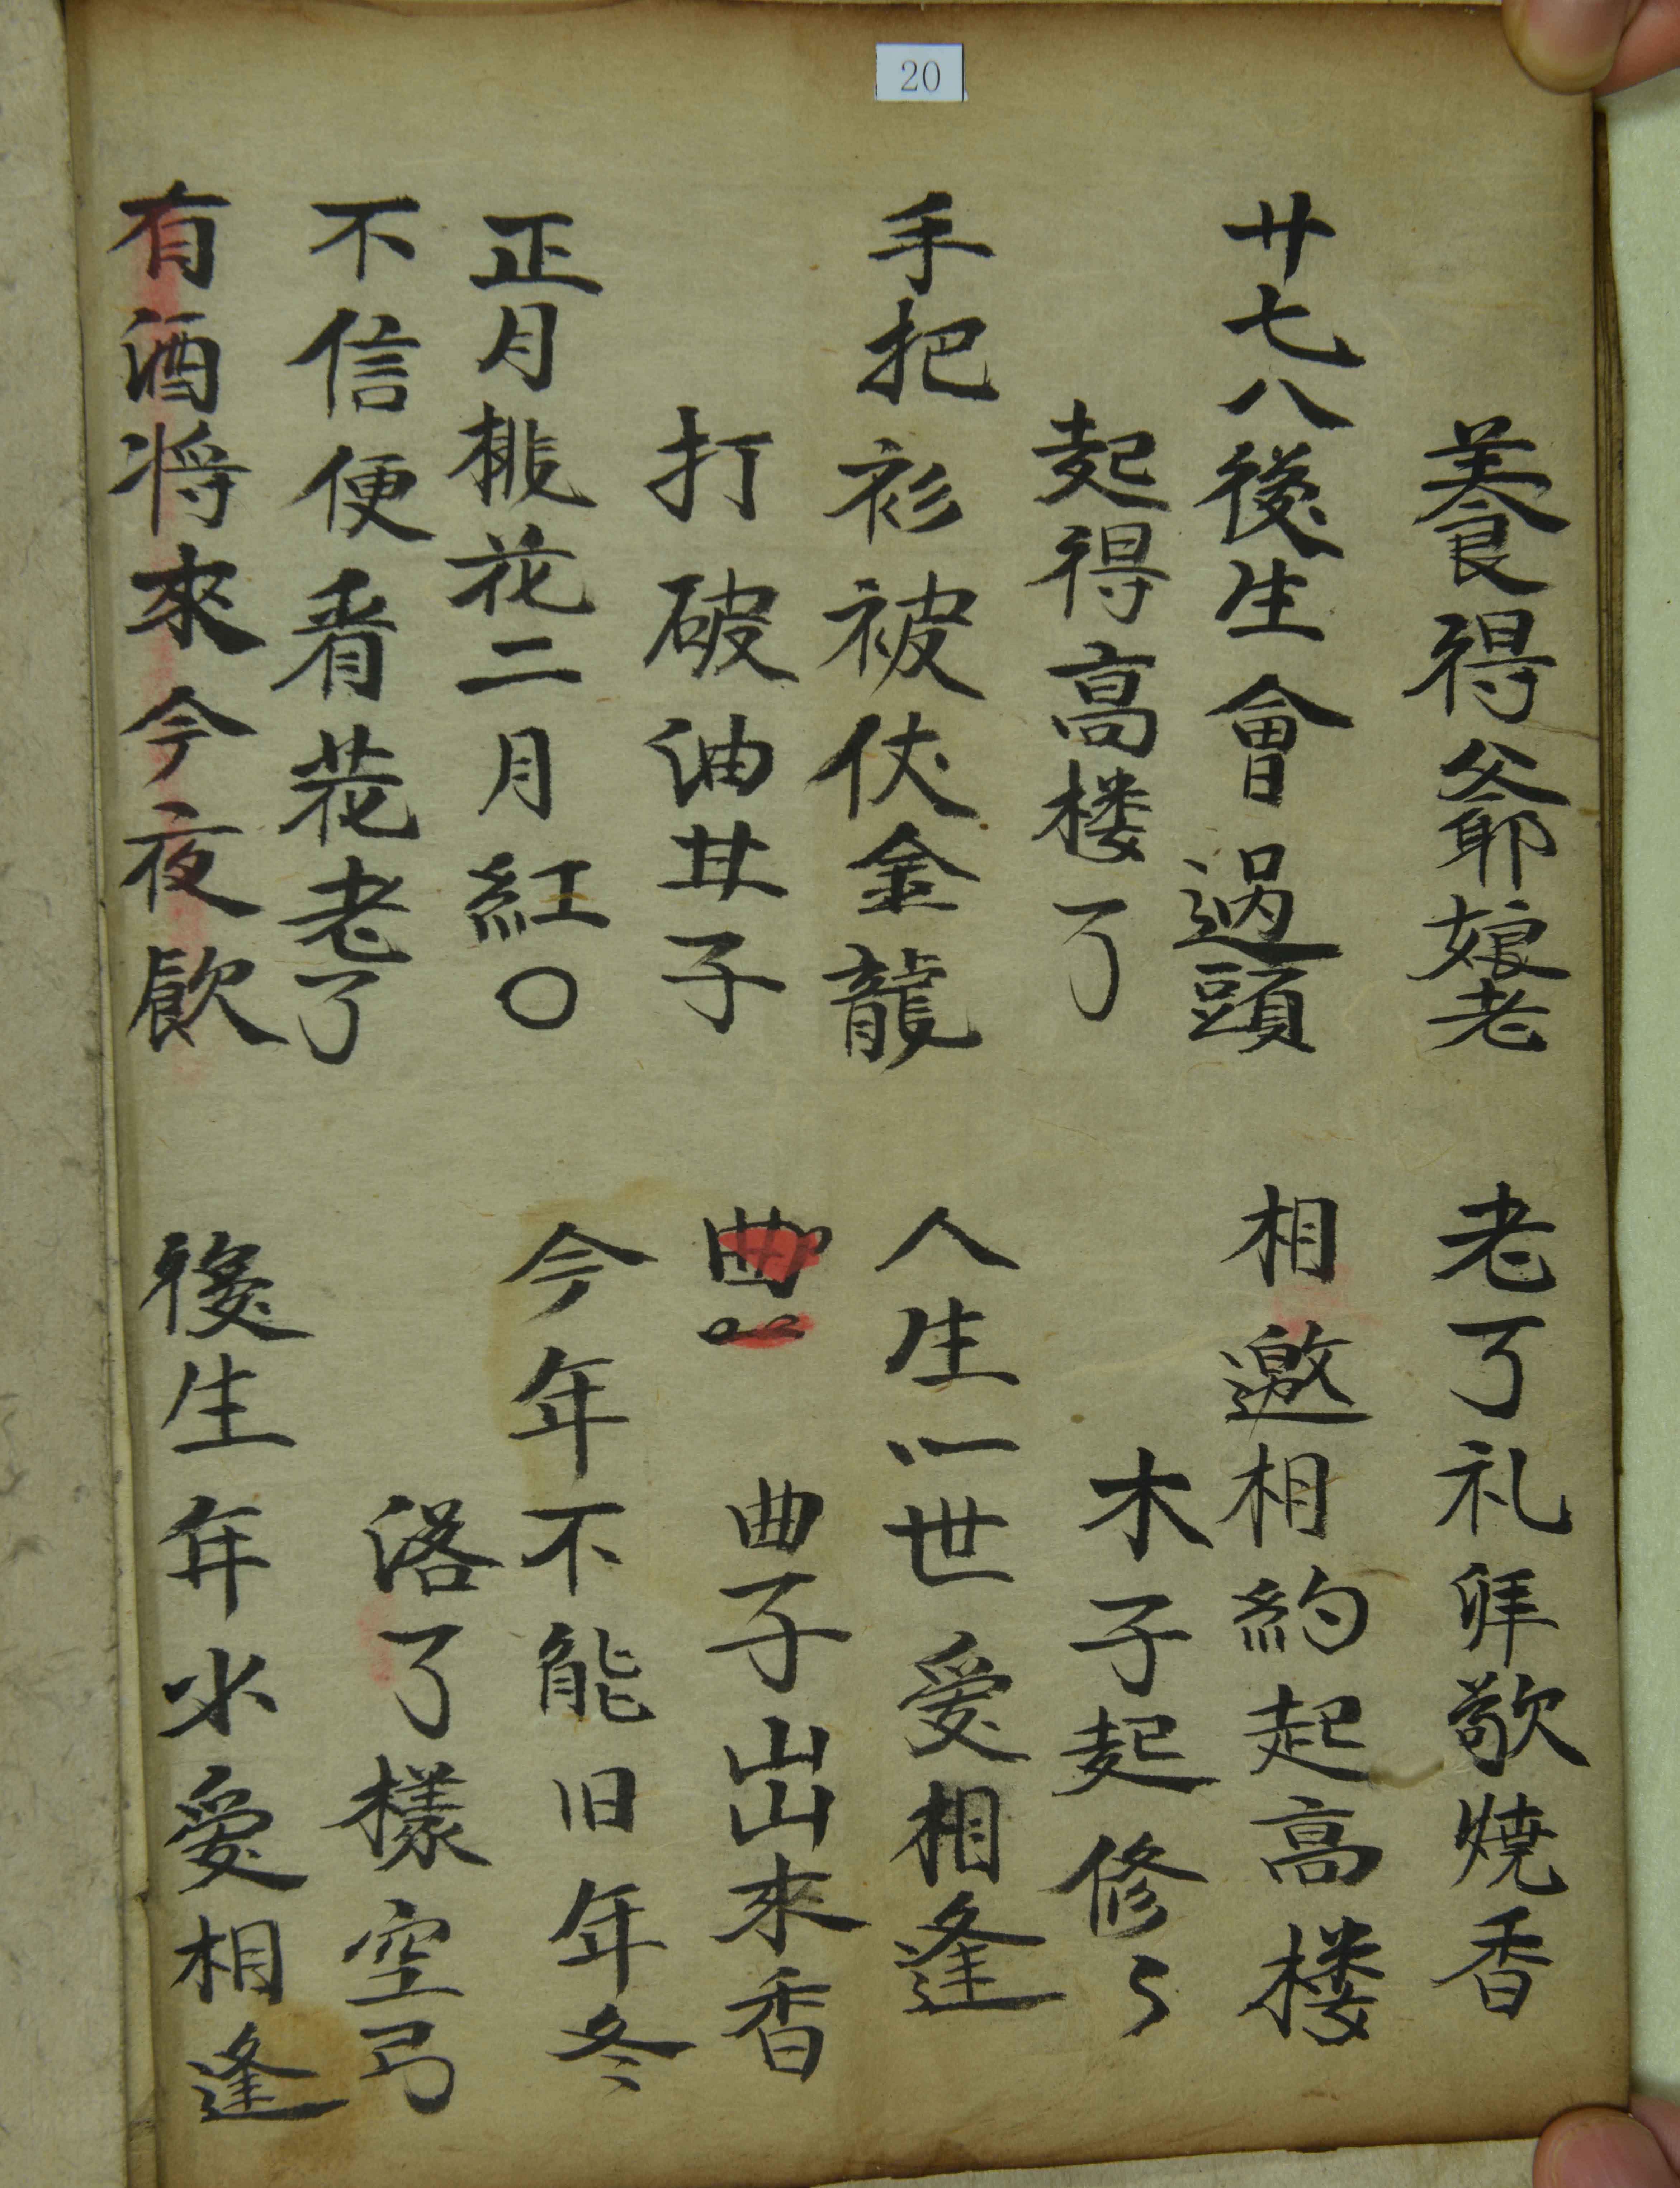 20
養得爺娘老
老了礼拜敬燒香
廿七八後生會過頭
相邀相約起高楼
起得高楼了
木子起修〻
手把衫被伏金龍
人生一世愛相逢
打破油甘子
曲子出來香
正月桃花二月紅〇
今年不能旧年冬
不信便看花老了
落了樣空弓
有酒将來今夜飲
後生年少愛相逢